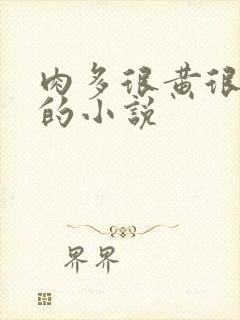 肉多很黄很
的小说
界界